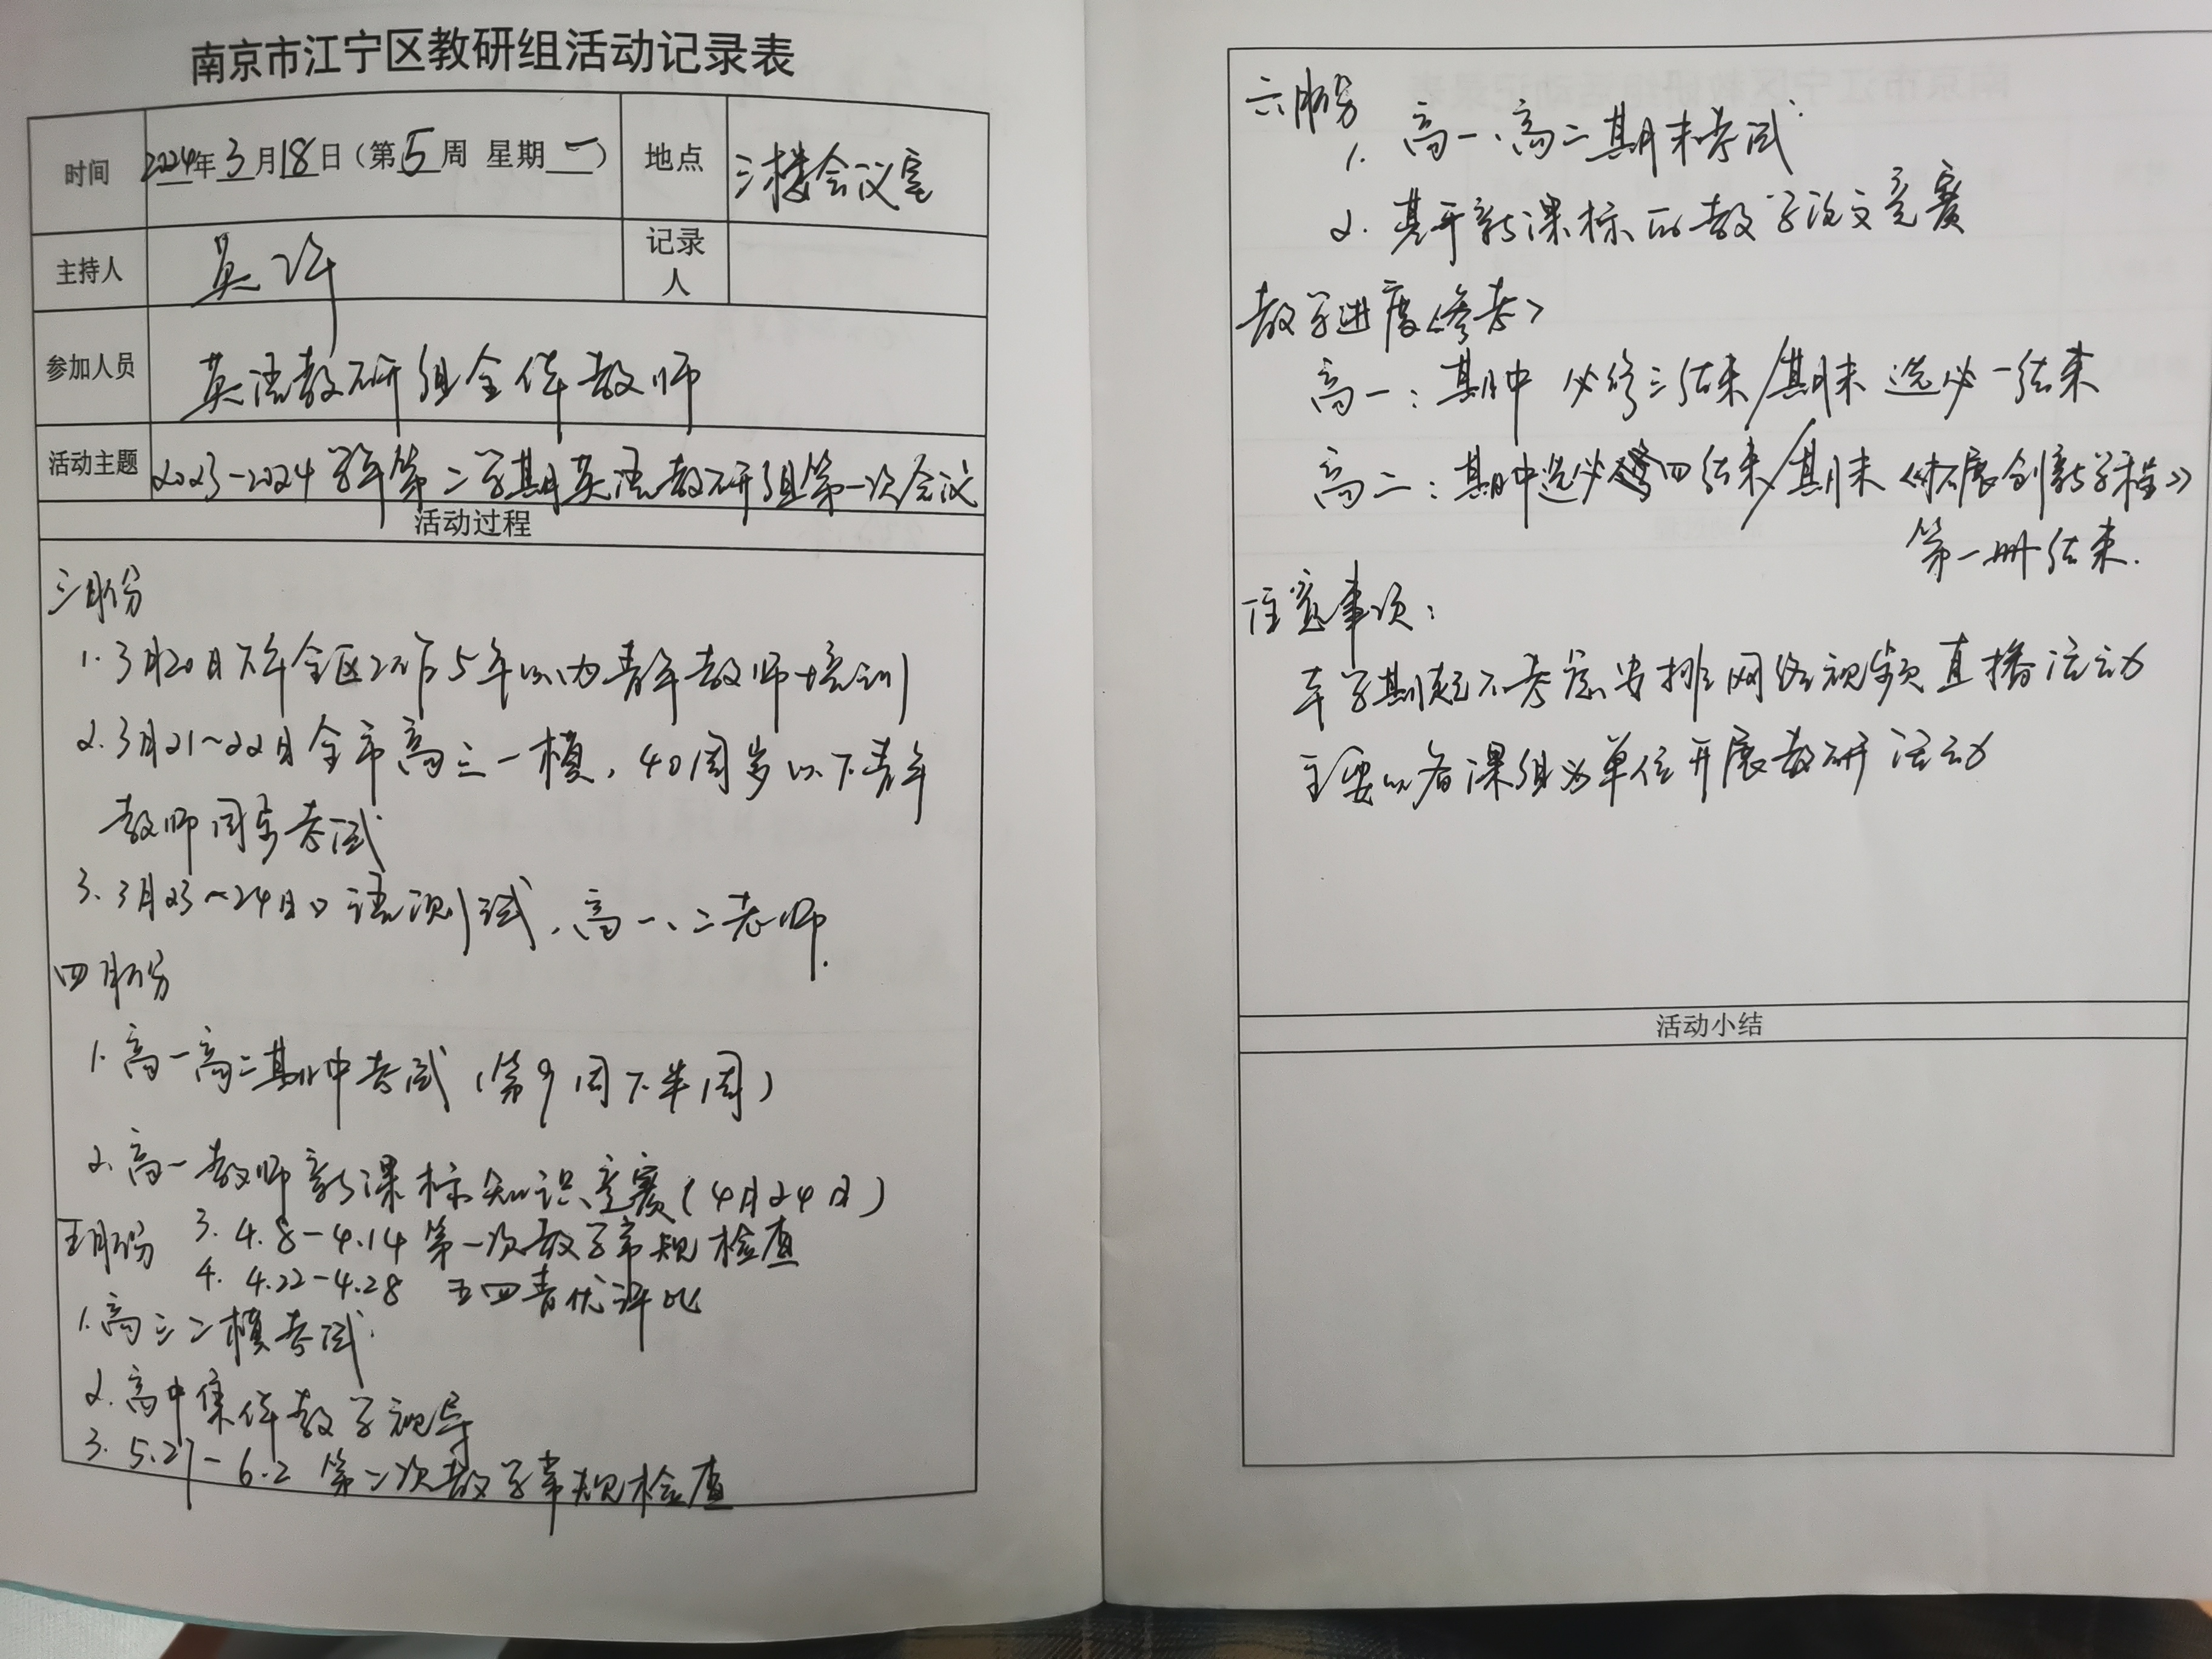 南京市江宁区教研组活动记录表
时间 2024年3月18日（第5周 星期一） 地点 三楼会议室
主持人 吴许 记录人
参加人员 英语教研组全体教师
活动主题 2023-2024学年第二学期英语教研组第一次会议
活动过程
三月份
1. 3月20日下午全区工作5年以内青年教师培训
2. 3月21~22日全市高三一模，40周岁以下青年
教师同步考试
3. 3月23~24日口语测试，高一、二老师.
四月份
1. 高一高二期中考试（第9周下半周）
2. 高一教师新课标知识竞赛（4月24日）
3. 4.8-4.14 第一次教学常规检查
4. 4.22-4.28 五四青优评比
五月份
1. 高三二模考试.
2. 高中集体教学视导
3. 5.27-6.2 第二次教学常规检查
六月份
1. 高一、高二期末考试.
2. 基于新课标的教学论文竞赛
教学进度<参考>
高一：期中 必修三结束/期末 选必一结束
高二：期中选必四结束/期末《拓展创新学程》
第一册结束.
注意事项：
本学期起不考虑安排网络视频直播活动
主要以备课组为单位开展教研活动
活动小结